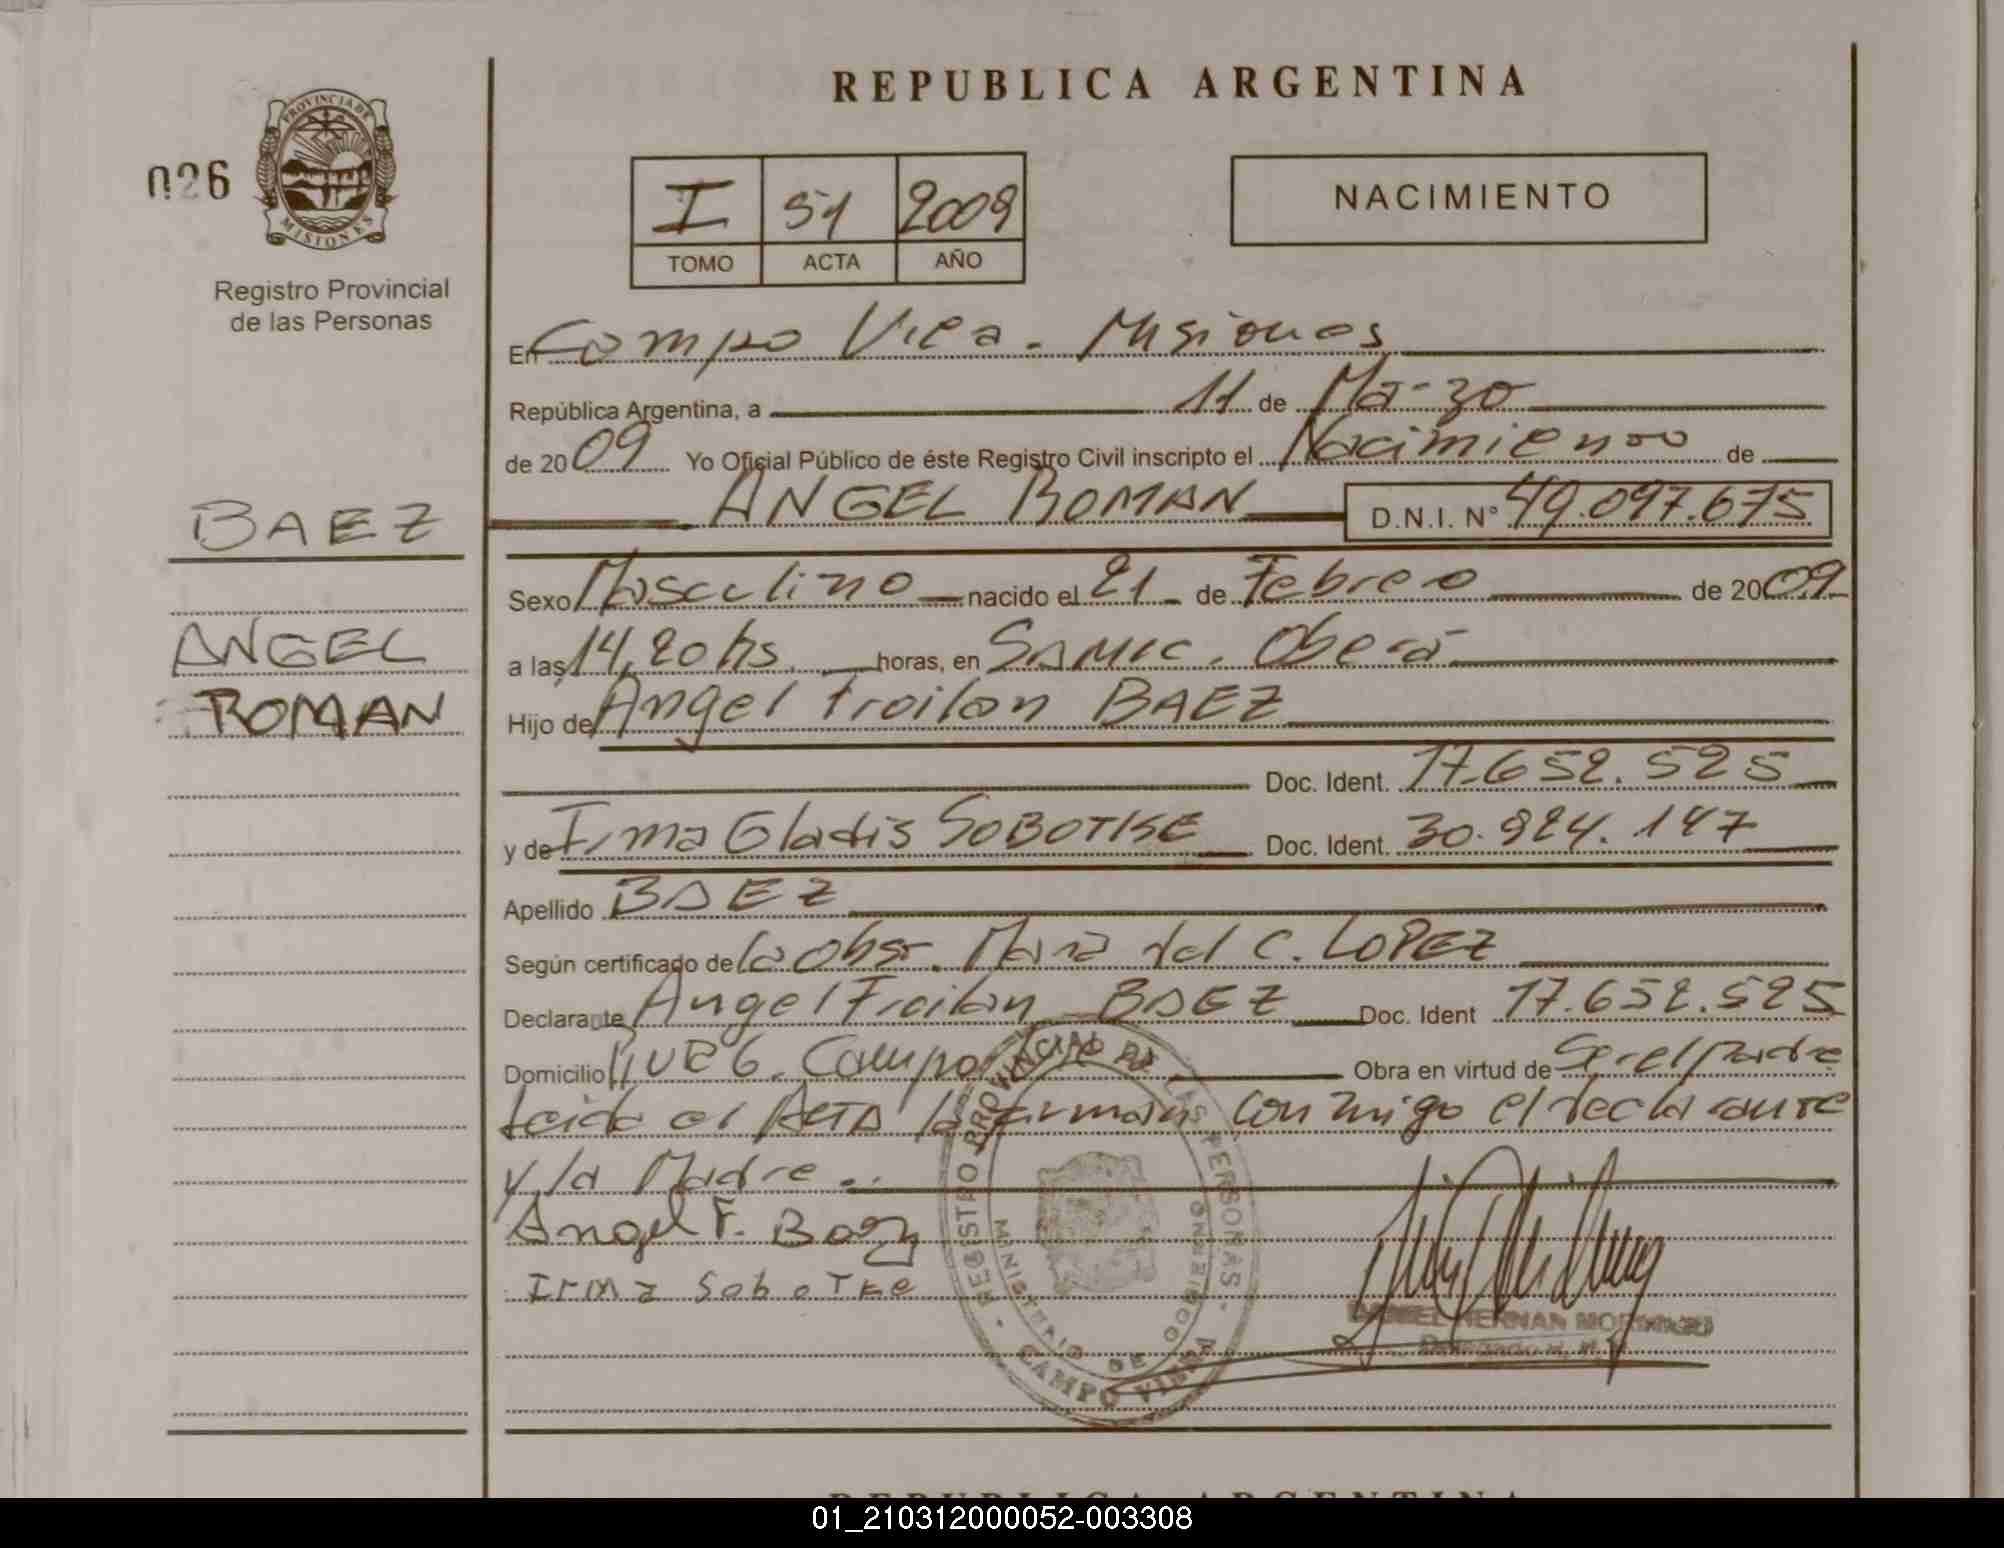 REPUBLICA ARGENTINA
026
PROVINCIA DE
MISIONES
Registro Provincial
de las Personas
I 51 2009
TOMO ACTA AÑO
NACIMIENTO
En Campo Viera. Misiones
República Argentina, a 11 de Marzo
de 2009 Yo Oficial Público de éste Registro Civil inscripto el Nacimiento de
ANGEL ROMAN D.N.I. Nº 49.097.675
BAEZ
ANGEL
ROMAN
Sexo Masculino nacido el 21 de Febrero de 2009
a las 14,20 hs. horas, en SAMIC. Oberá
Hijo de Angel Froilan BAEZ
Doc. Ident. 17.652.525
y de Irma Gladis SOBOTKE Doc. Ident. 30.924.147
Apellido BAEZ
Según certificado de la obst. Maria del C. LOPEZ
Declarante Angel Froilan BAEZ Doc. Ident 17.652.525
Domicilio Campo Obra en virtud de Ser el padre
Leida el ACTA la firman conmigo el declarante
y la Madre.
Angel F. Baez
Irma SoboTKe
REGISTRO PROVINCIAL DE LAS PERSONAS
MINISTERIO DE GOBIERNO
CAMPO VIERA
HERNAN
REPUBLICA ARGENTINA
01_210312000052-003308